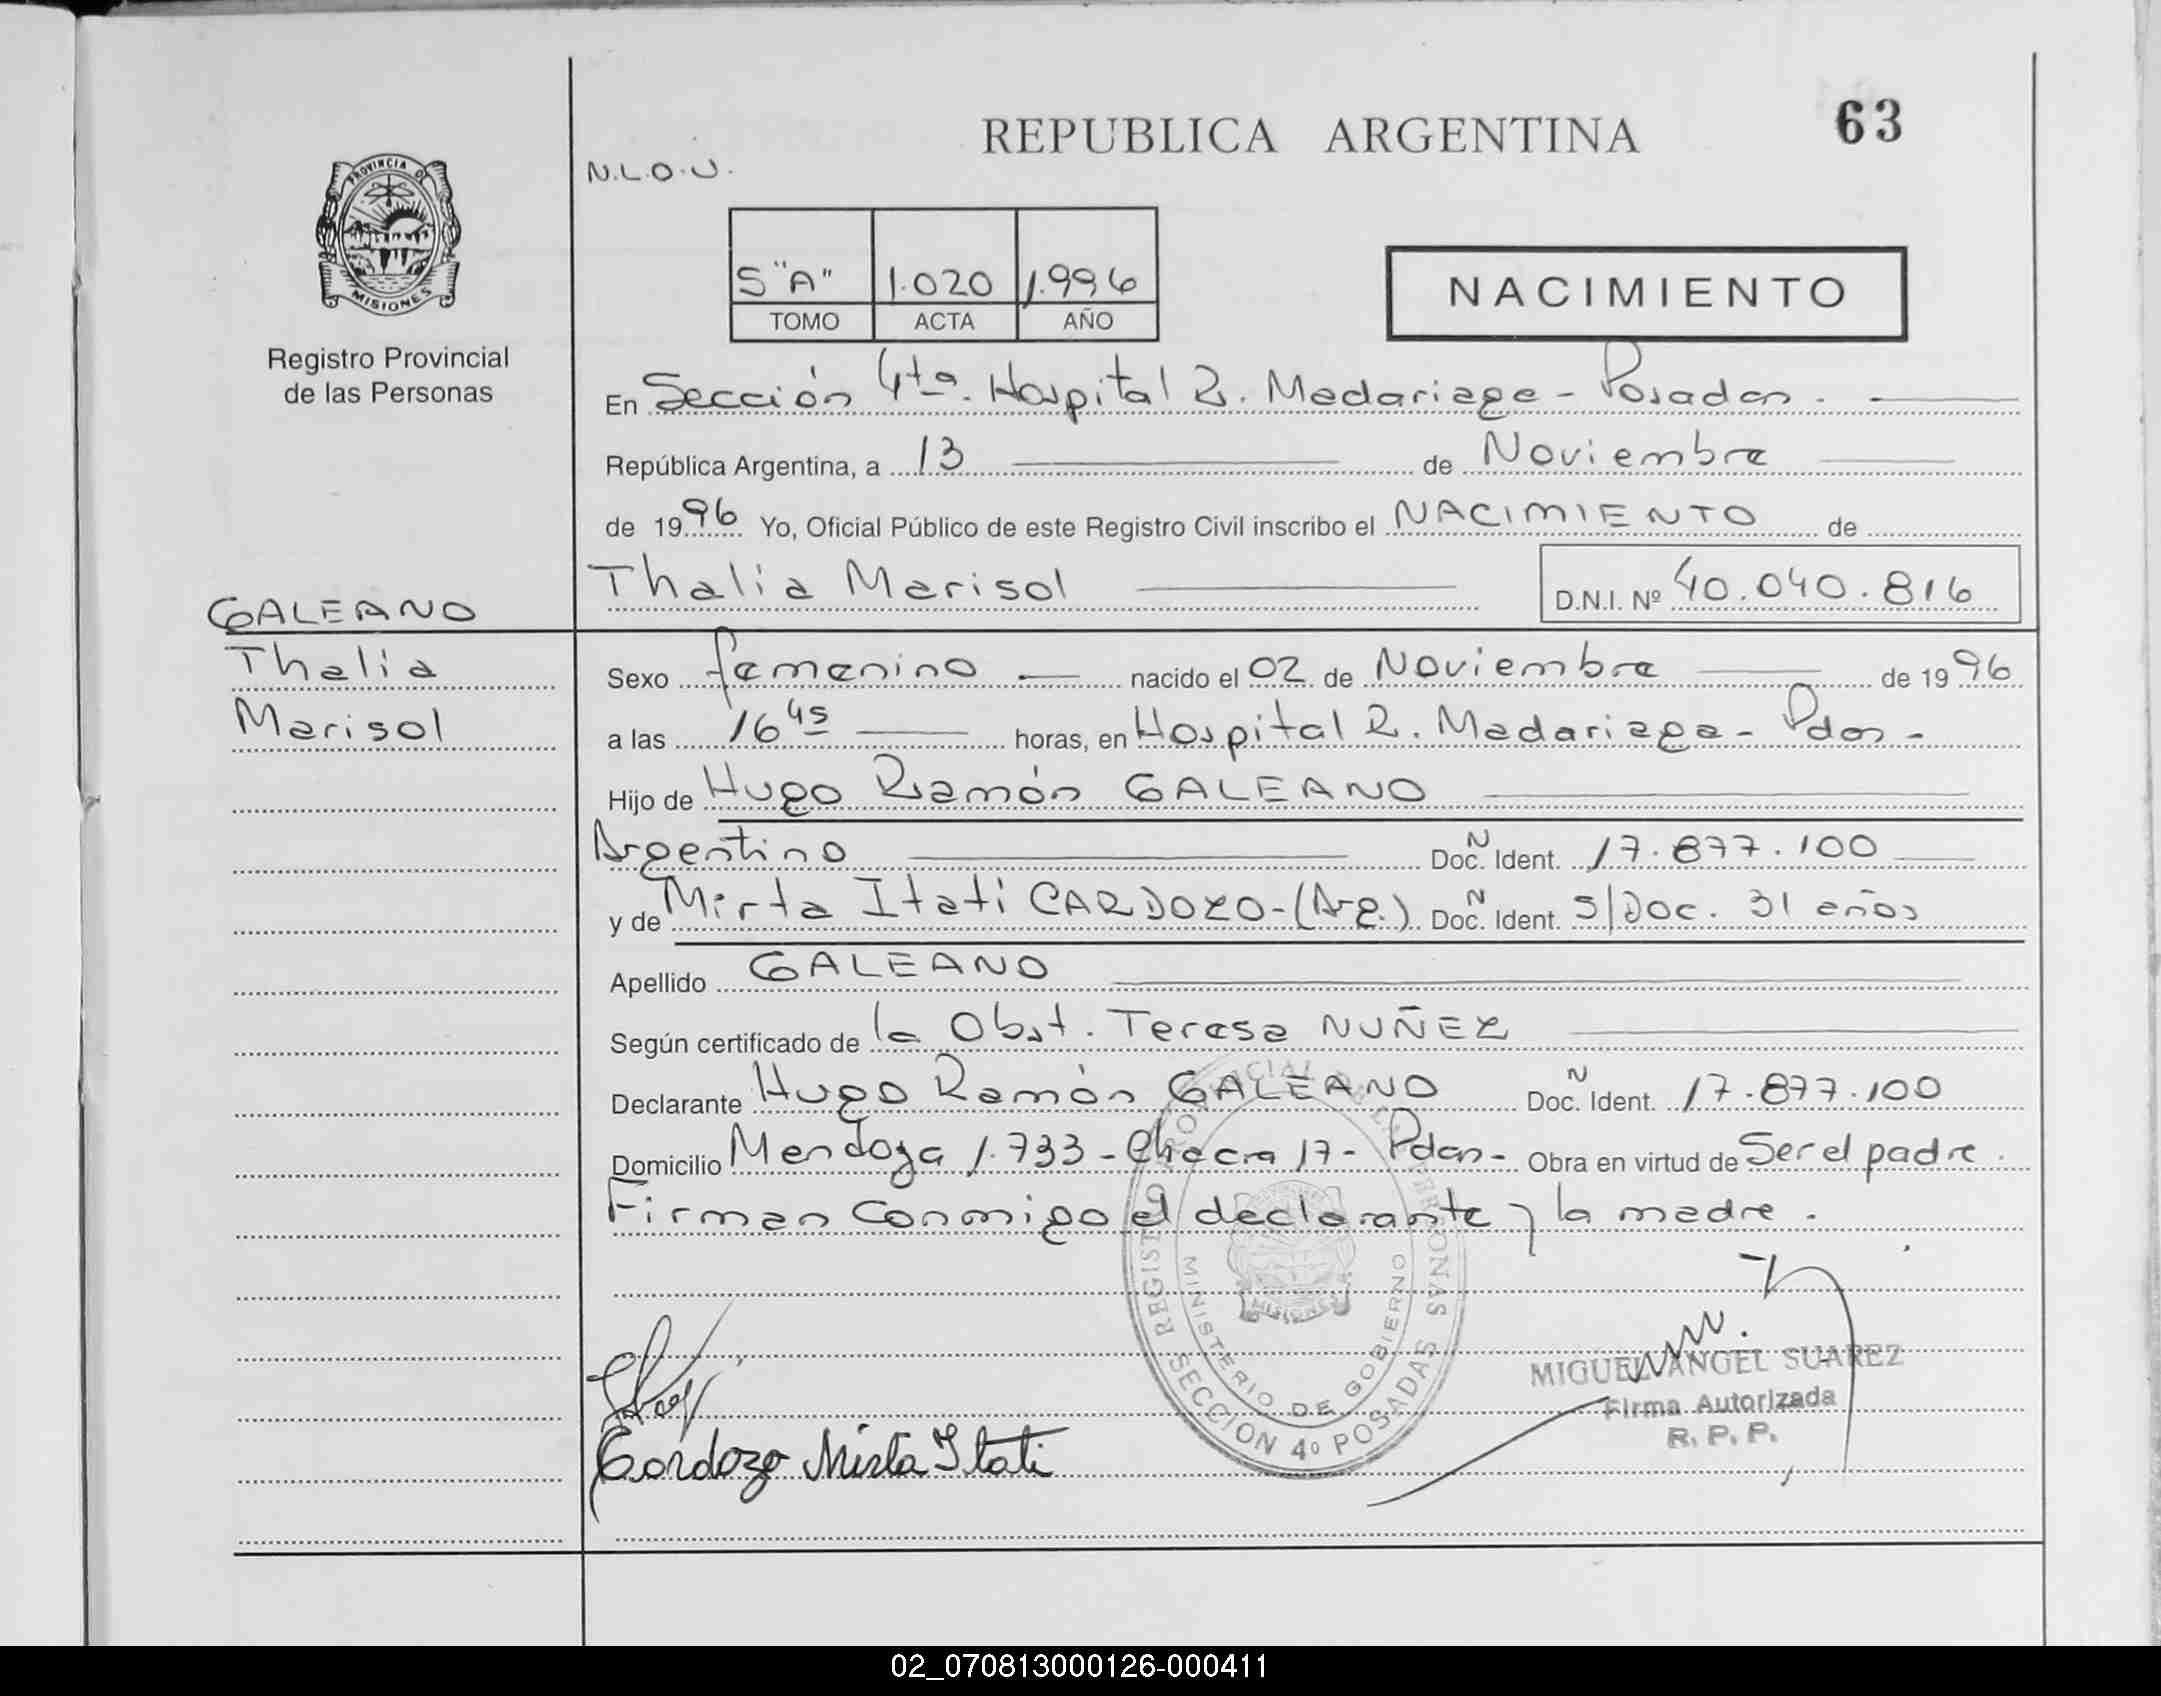 REPUBLICA ARGENTINA
63
N.L.O.U.
PROVINCIA DE
MISIONES
Registro Provincial
de las Personas
S "A" 1.020 1.996
TOMO ACTA AÑO
NACIMIENTO
En Sección 4ta. Hospital R. Madariaga - Posadas. -
República Argentina, a 13 de Noviembre
de 1996 Yo, Oficial Público de este Registro Civil inscribo el NACIMIENTO de
Thalía Marisol D.N.I. Nº 40.040.816
GALEANO
Thalía
Marisol
Sexo femenino nacido el 02 de Noviembre de 1996
a las 16 45 horas, en Hospital R. Madariaga - Pdas -
Hijo de Hugo Ramón GALEANO
Argentino Doc. N Ident. 17.877.100
y de Mirta Itatí CARDOZO - (Arg.) Doc. N Ident. S/Doc. 31 años
Apellido GALEANO
Según certificado de la Obst. Teresa NUÑEZ
Declarante Hugo Ramón GALEANO Doc. N Ident. 17.877.100
Domicilio Mendoza 1.733 - Chacra 17 - Pdas - Obra en virtud de Ser el padre.
Firman conmigo el declarante y la madre.
REGISTRO PROVINCIAL DE LAS PERSONAS
MINISTERIO DE GOBIERNO
MISIONES
SECCION 4º POSADAS
MIGUEL ANGEL SUAREZ
Firma Autorizada
R. P. P.
Cardozo Mirta Itati
02_070813000126-000411